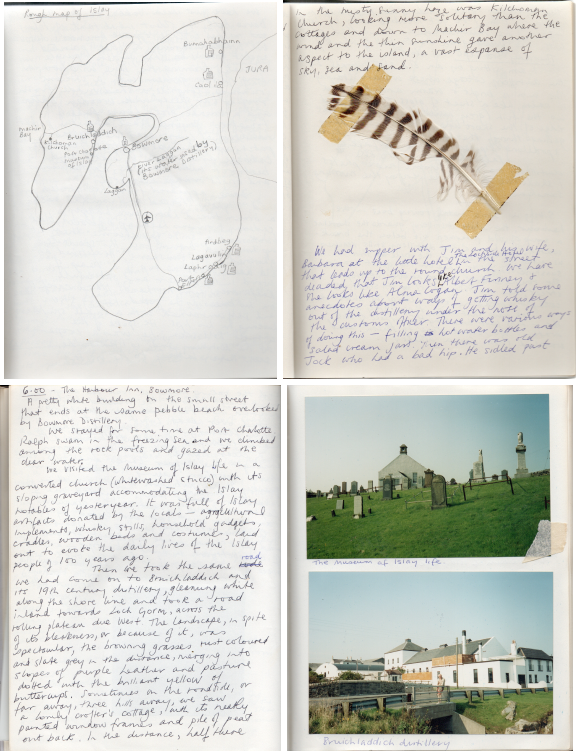 Rough map of Islay
Bunnahabhainn
Caol Ila
JURA
Machir
Bay
Kilchoman
Church
Bruichladdich
Port Charlotte
museum
of Islay
Bowmore
River Laggan
(its water used by
Bowmore Distillery)
Laggan
Ardbeg
Lagavulin
Laphroaig
Port
In the misty sunny haze was Kilchoman
Church, looking more solitary than the
cottages and down to Machir Bay where the
wind and the thin sunshine gave another
aspect to the island, a vast expanse of
sky, sea and sand.
We had supper with Jim and his wife,
Barbara at the little hotel in the street
that leads up to the round church. We have
decided that Jim looks like Albert Finney &
She looks like Alma Cogan. Jim told some
anecdotes about ways of getting whisky
out of the distillery under the nose of
the customs. There were various ways
of doing this – filling hot water bottles and
salad cream jars. Then there was old
Jock who had a bad hip. He sidled past
6:00 - The Harbour Inn, Bowmore.
A pretty white building on the small street
that ends at the same pebble beach overlooked
by Bowmore Distillery.
We stayed for some time at Port Charlotte.
Ralph swam in the freezing sea and we climbed
among the rock pools and gazed at the
clear water.
We visited the museum of Islay life in a
converted church (whitewashed stucco) with its
sloping graveyard accommodating the Islay
notables of yesteryear. It was full of Islay
artifacts donated by the locals – agricultural
implements, whisky stills, household gadgets,
cradles, wooden beds and costumes, laid
out to evoke the daily lives of the Islay
people of 100 years ago.
Then we took the same road
we had come on to Bruichladdich and
its 19th century distillery, gleaming white
along the shore line and took a road
inland towards Loch Gorm, across the
rolling plateau due West. The landscape, in spite
of its bleakness, or because of it, was
spectacular, the browning grasses, rust coloured
and slate grey in the distance, merging into
slopes of purple heather and pasture
dotted with the brilliant yellow of
buttercups. Sometimes on the roadside, or
far away, three hills away, we saw
a lonely crofter's cottage, with its neatly
painted window frames and pile of peat
out back. In the distance, half there
The museum of Islay life
Bruichladdich distillery